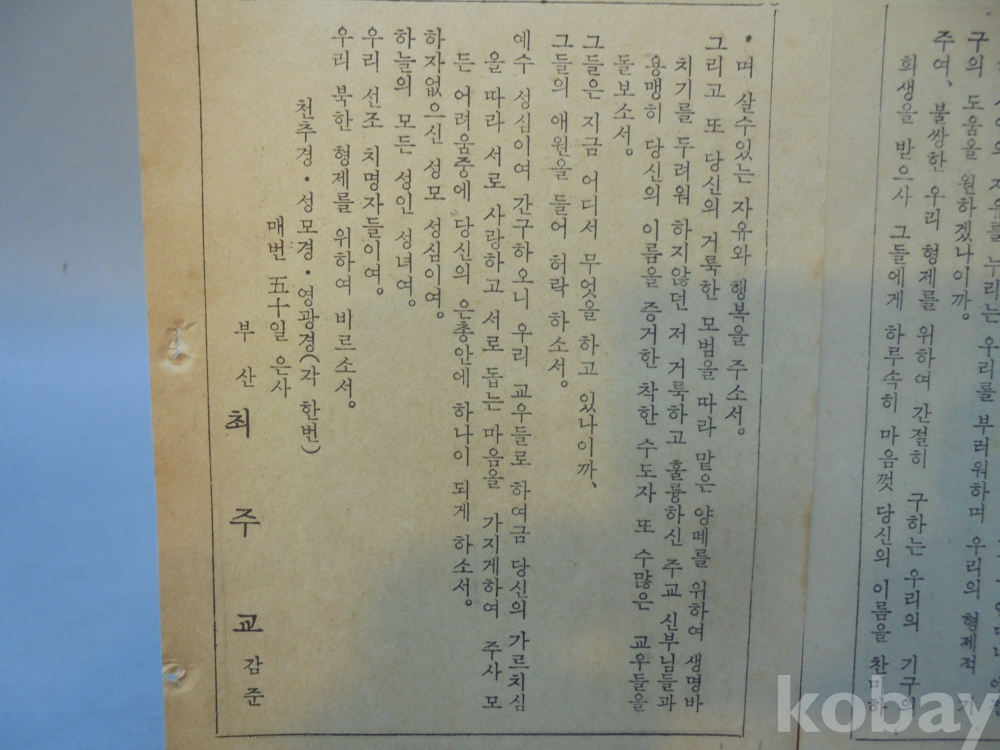 구의 도움을 원하겠나이까。
주여、불쌍한 우리 형제를 위하여 간절히 구하는 우리의 기구의
희생을 받으사 그들에게 하루속히 마음껏 당신의 이름을 찬미하
며 살수있는 자유와 행복을 주소서。
그리고 또 당신의 거룩한 모범을 따라 맡은 양떼를 위하여 생명바
치기를 두려워 하지않던 저 거룩하고 훌륭하신 주교 신부님들과
용맹히 당신의 이름을 증거한 착한 수도자 또 수많은 교우들을
돌보소서。
그들은 지금 어디서 무엇을 하고 있나이까、
그들의 애원을 들어 허락 하소서。
예수 성심이여 간구하오니 우리 교우들로 하여금 당신의 가르치심
을 따라 서로 사랑하고 서로 돕는 마음을 가지게하여 주사 모
든 어려움중에 당신의 은총안에 하나이 되게 하소서。
하자없으신 성모 성심이여。
하늘의 모든 성인 성녀여。
우리 선조 치명자들이여。
우리 북한 형제를 위하여 비르소서。
천추경・성모경・영광경(각 한번)
매번 五十일 은사
부산 최 주교 감준
kobay